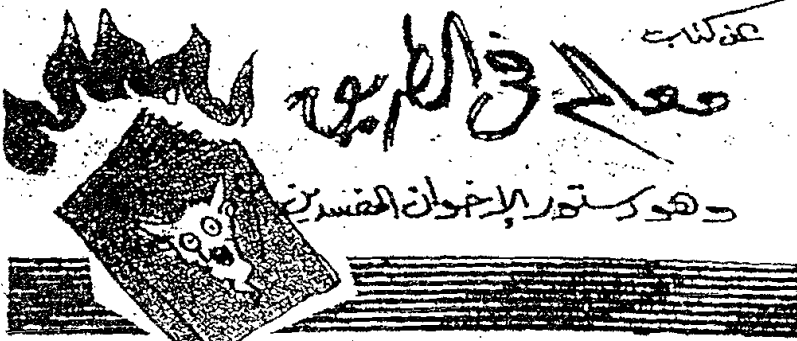 عن كتاب
معالم في الطريق
وهو دستور الإخوان المفسدين